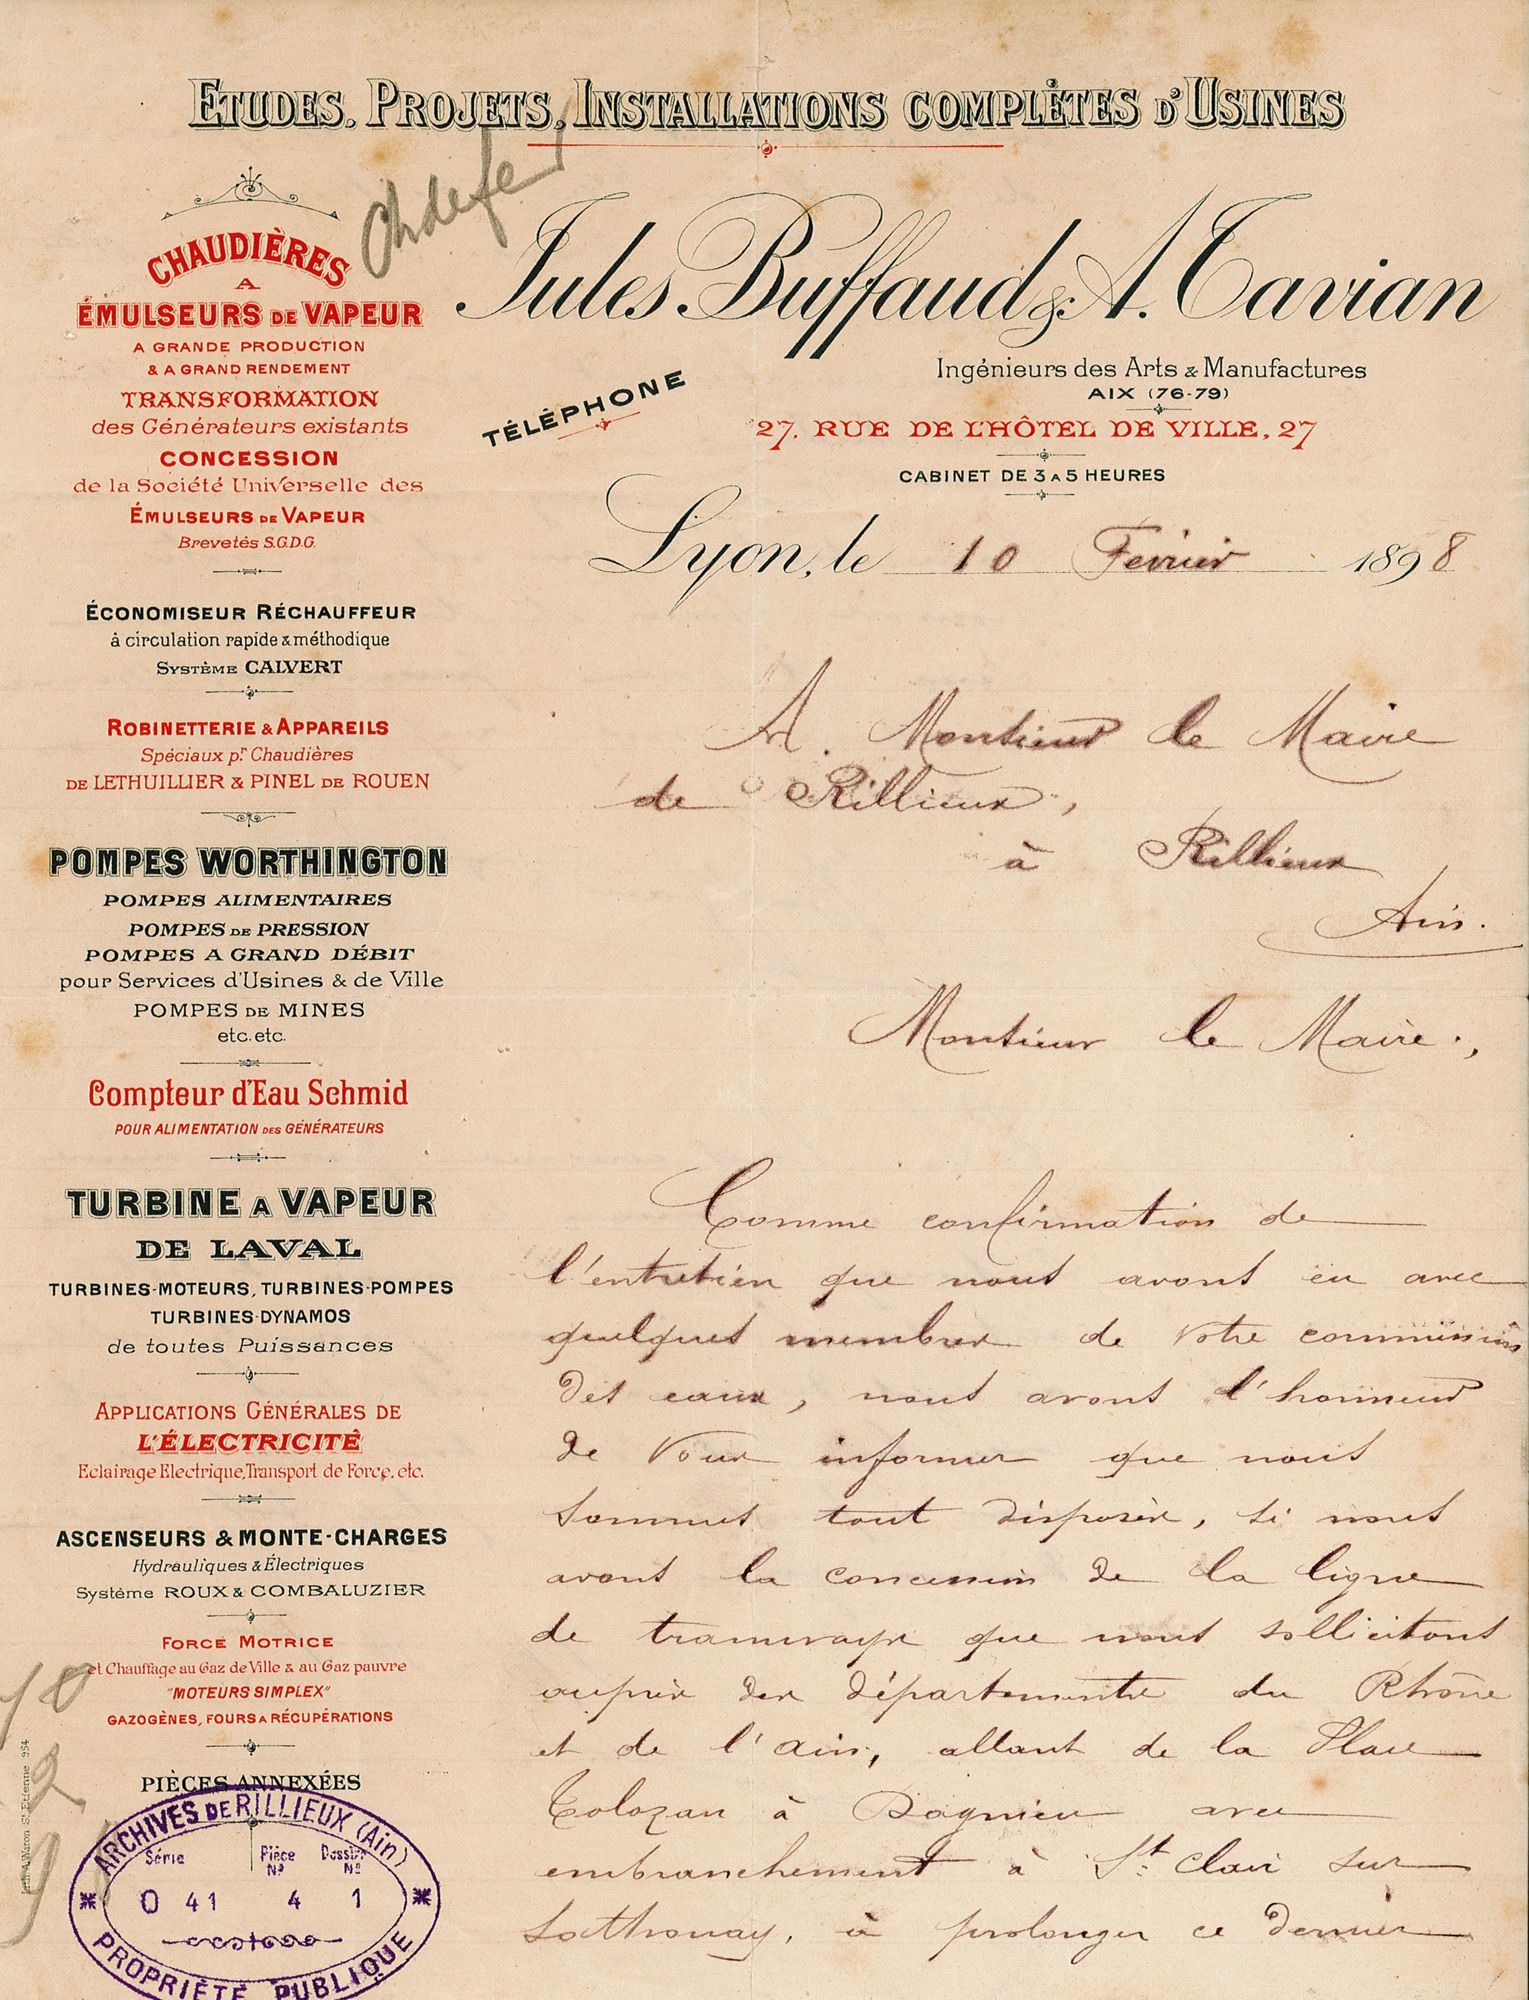 ETUDES. PROJETS. INSTALLATIONS COMPLÈTES D'USINES
Chdefer
Jules Buffaud & A. Tavian
Ingénieurs des Arts & Manufactures
AIX (76-79)
TÉLÉPHONE
27, RUE DE L'HÔTEL DE VILLE, 27
CABINET DE 3 A 5 HEURES
Lyon, le 10 Fevrier 1898
CHAUDIÈRES
A
ÉMULSEURS DE VAPEUR
A GRANDE PRODUCTION
& A GRAND RENDEMENT
TRANSFORMATION
des Générateurs existants
CONCESSION
de la Société Universelle des
ÉMULSEURS DE VAPEUR
Brevetés S.G.D.G.
ÉCONOMISEUR RÉCHAUFFEUR
à circulation rapide & méthodique
SYSTÈME CALVERT
ROBINETTERIE & APPAREILS
Spéciaux pr. Chaudières
DE LETHUILLIER & PINEL DE ROUEN
POMPES WORTHINGTON
POMPES ALIMENTAIRES
POMPES DE PRESSION
POMPES A GRAND DÉBIT
pour Services d'Usines & de Ville
POMPES DE MINES
etc. etc.
Compteur d'Eau Schmid
POUR ALIMENTATION DES GÉNÉRATEURS
TURBINE A VAPEUR
DE LAVAL
TURBINES-MOTEURS, TURBINES-POMPES
TURBINES-DYNAMOS
de toutes Puissances
APPLICATIONS GÉNÉRALES DE
L'ÉLECTRICITÉ
Eclairage Electrique, Transport de Force, etc.
ASCENSEURS & MONTE-CHARGES
Hydrauliques & Électriques
Système ROUX & COMBALUZIER
FORCE MOTRICE
et Chauffage au Gaz de Ville & au Gaz pauvre
"MOTEURS SIMPLEX"
GAZOGÈNES, FOURS A RÉCUPÉRATIONS
PIÈCES ANNEXÉES
ARCHIVES DE RILLIEUX (Ain)
Série Pièce No Dossier No
O 41 4 1
PROPRIÉTÉ PUBLIQUE
A. Monsieur le Maire
de Rillieux,
à Rillieux
Ain.
Monsieur le Maire,
Comme confirmation de
l'entretien que nous avons eu avec
quelques membres de votre commission
des eaux, nous avons l'honneur
de vous informer que nous
sommes tout disposés, si nous
avons la concession de la ligne
de tramways que nous sollicitons
auprès des départements du Rhône
et de l'Ain, allant de la Place
Tolozan à Dagnieu avec
embranchement à St Clair sur
Sathonay, à prolonger ce dernier